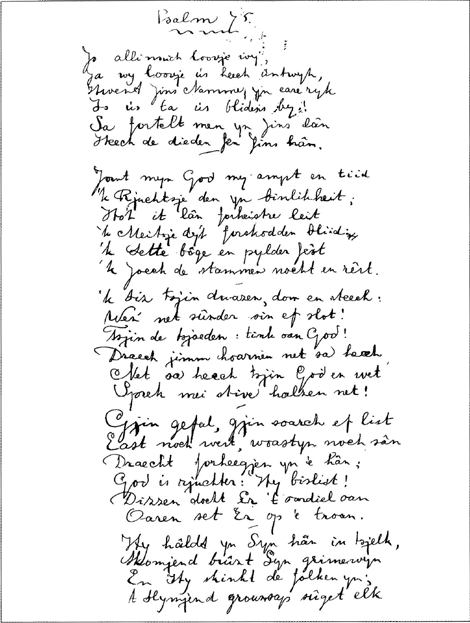 Psalm 75.
Jo allinnich loovje wy,
Ja wy loovje ús heech ûntwyk,
Hwent Jins Namme, yn eare ryk
Is ús ta ús blidens by!
Sa fortelt men yn Jins lân
Heech de dieden fen Jins hân.
Jowt myn God my ampt en tiid
'k Rjuchtsje den yn binlikheit;
Hot it lân forheistre leit
'k Meitsje dy't forskodden bliid
'k Sette bôge en pylder fêst
'k Joech de stammen nocht en rêst.
'k Siz tsjin dwazen, dom en sleech:
Wêz' net sûnder sin ef slot!
Tsjin de tsjoeden: tink oan God!
Draech jimm' hoarnen net sa heech
Net sa heech tsjin God en wet
Sprek mei stive halzen net!
Gjin gefal, gjin soarch ef list
East noch west, woastyn noch sân
Draecht forheegjen yn 'e hân;
God is rjuchter: Hy bislist!
Dizzen docht Er 't oardiel oan
Oaren set Er op 'e troan.
Hy hâldt yn Syn hân in tsjelk,
Skomjend brûst Syn grimewyn
En Hy skinkt de folken yn;
Slymjend grouwsop sûget elk